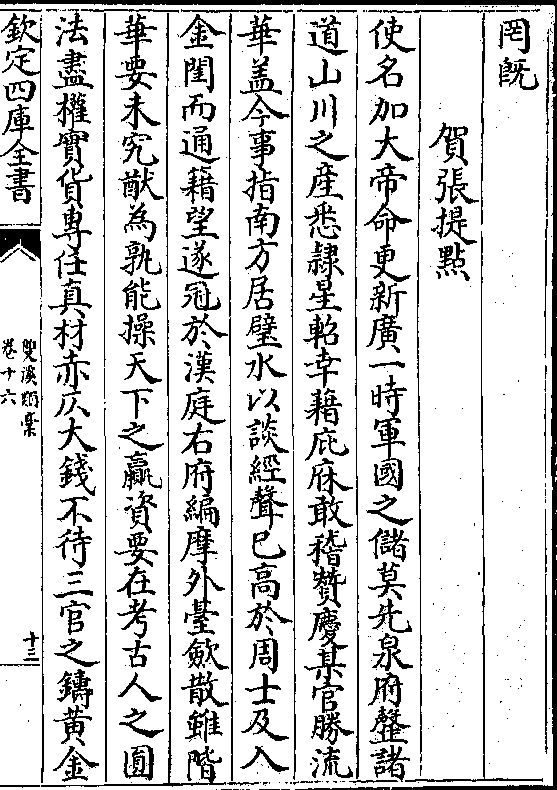 罔既
賀張提點
使名加大帝命更新廣一時軍國之儲莫先泉府盤諸
道山川之產悉隷星軺幸藉庇庥敢稽贊慶某官勝流
華盖今事指南方居璧水以談經聲已高於周士及入
金閨而通籍望遂冠於漢庭右府編摩外臺歛散雖階
華要未究猷為孰能操天下之贏資要在考古人之圜
法盡權寶貨專任真材赤仄大錢不待三官之鑄黃金
欽定四庫全書
雙溪類槀
卷十六
十三